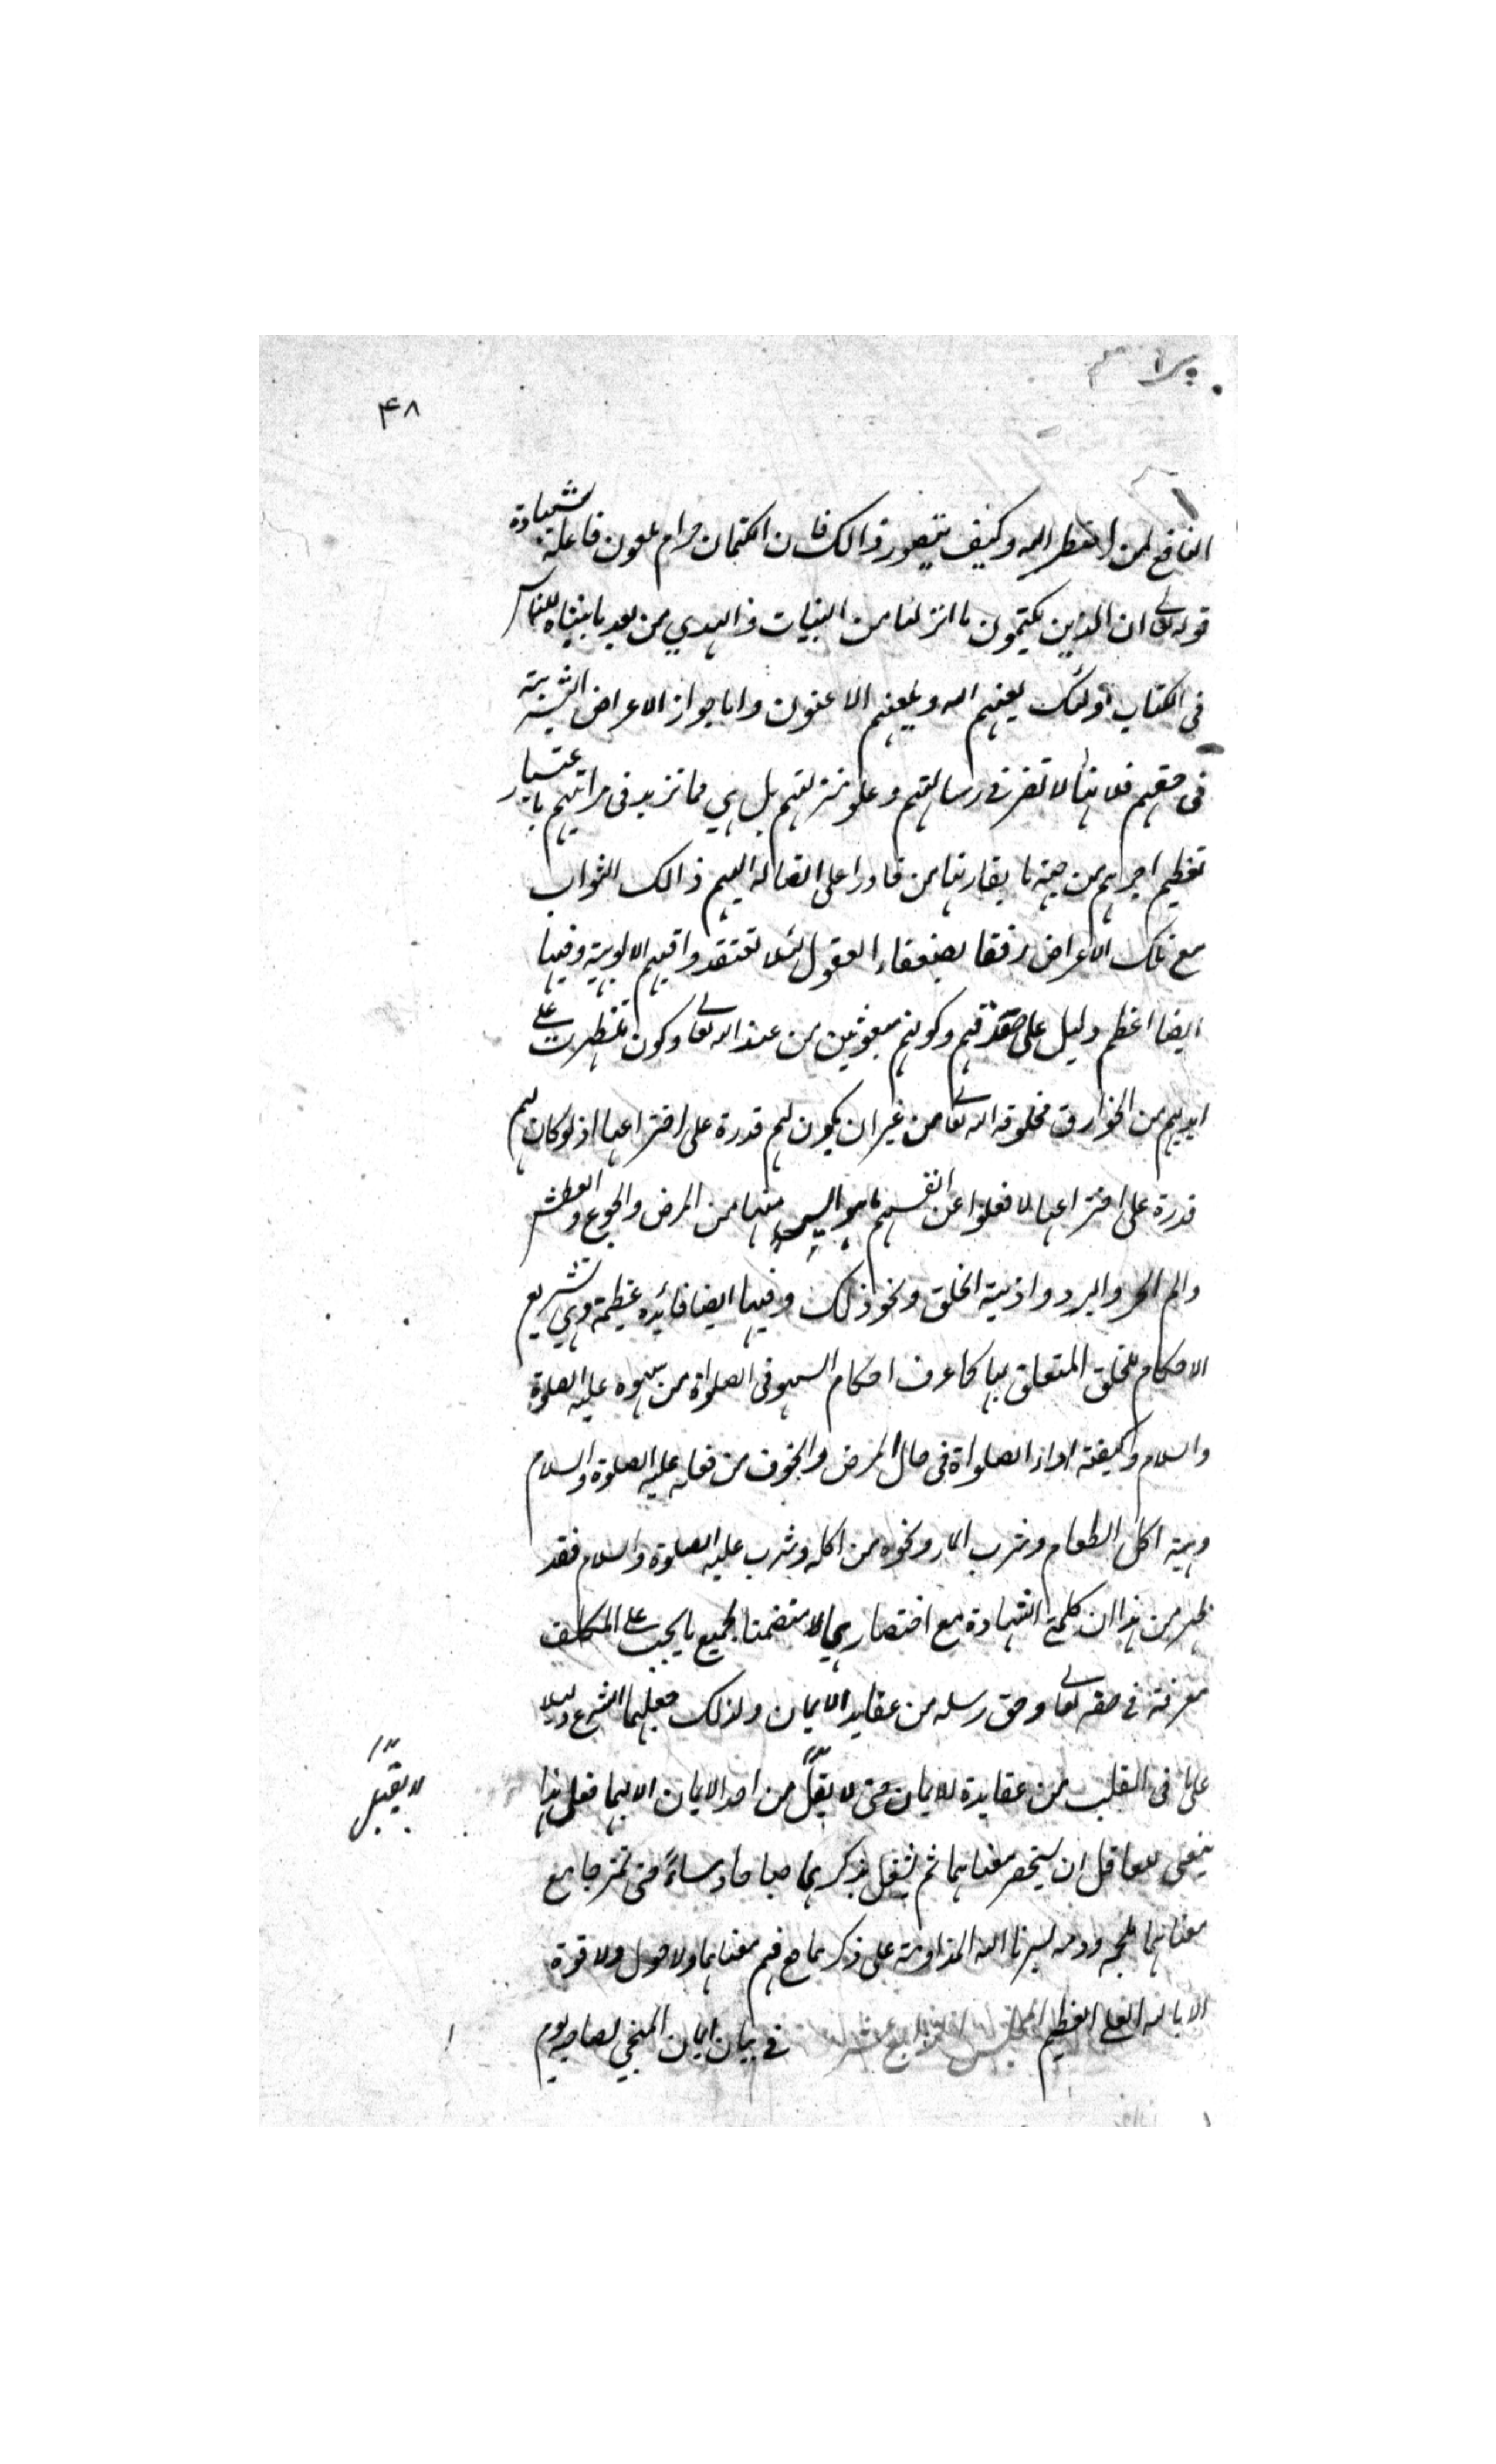 ۴۸
النافع لمن اضطر اليه وكيف يتصور ذالك فان الكتمان حرام ملعون فاعله بشهادة
قوله تعالى ان الذين يكتمون ما انزلنا من البينات والهدي من بعد ما بيناه للناس
فى الكتاب اولئك يلعنهم الله ويلعنهم الاعنون واما جواز الاعراض البشرية
فى حقهم فلانها لا تضر فى رسالتهم وعلو منزلتهم بل هي مما تزيد فى مراتبهم باعتبار
تعظيم اجرهم من جهة ما يقارنها من قادرا على ايصاله اليهم ذالك الثواب
مع تلك الاعراض رفقا بضعفاء العقول لئلا تعتقدوا فيهم الالوهية وفيها
ايضا اعظم دليل على صدقهم وكونهم مبعوثين من عند الله تعالى وكون ما ظهرت على
ايديهم من الخوارق مخلوقة الله تعالى من غير ان يكون لهم قدرة على اختراعها اذ لو كان لهم
قدرة على اختراعها لا فعلوا عن انفسهم ما هو منها من المرض والجوع والعطش
والم الحر والبرد واذية الخلق ونحو ذلك وفيها ايضا فائده عظيمة وهي تشريع
الاحكام للخلق المتعلق بها كما عرف احكام السهو فى الصلواة من سهوه عليه الصلوة
والسلام وكيفية اداء الصلواة فى حال المرض والخوف من فعله عليه الصلوة والسلام
وهيئة اكل الطعام وشرب الماء ونحوه من اكله وشرب عليه الصلوة والسلام فقد
ظهر من هذا ان كلمتي الشهادة مع اختصارها متضمنا لجميع ما يجب على المكلف
معرفة فى حقه تعالى وحق رسله من عقايد الايمان ولذلك جعلهما الشرع دليلا
على ما فى القلب من عقايدة للايمان حتى لا يقبل من احد الايمان الا بهما فعلى هذا
لا يقبل
ينبغى للعاقل ان يستحضر معناهما ثم يشغل بذكرهما صباحا ومساءً حتى تمتزجا مع
معناهما بلحمه ودمه يسرنا الله المداومة على ذكرهما مع فهم معناهما ولا حول ولا قوة
الا بالله العلى العظيم المجلس الرابع عشر فى بيان ايمان المنجي لصاحبه يوم